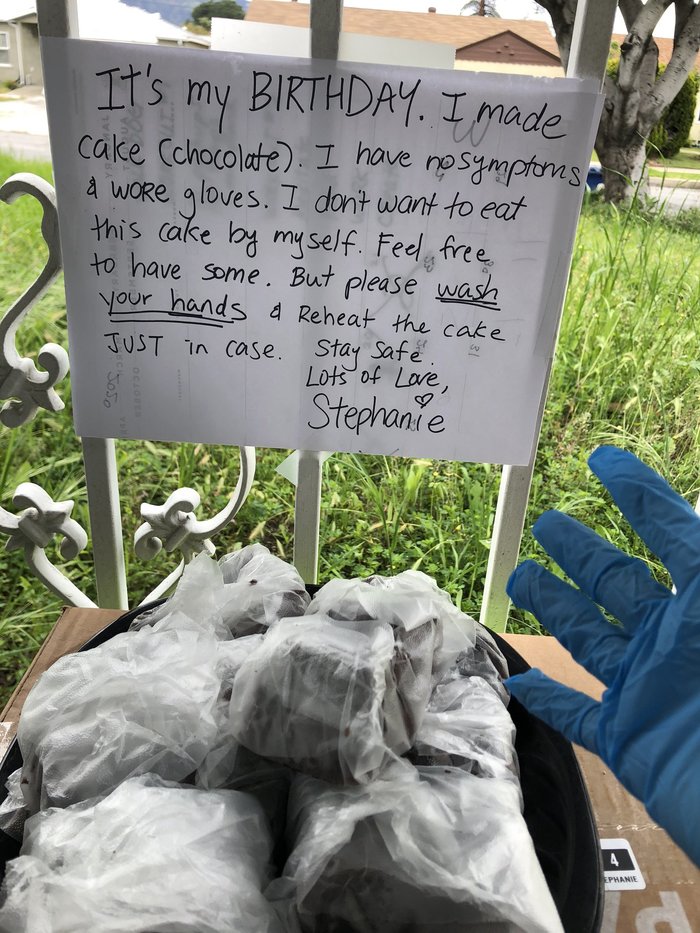 It's my BIRTHDAY. I made
cake (chocolate). I have no symptoms
& wore gloves. I don't want to eat
this cake by myself. Feel free
to have some. But please wash
your hands & Reheat the cake
JUST in case. Stay Safe.
Lots of Love,
Stephanie
4
EPHANIE